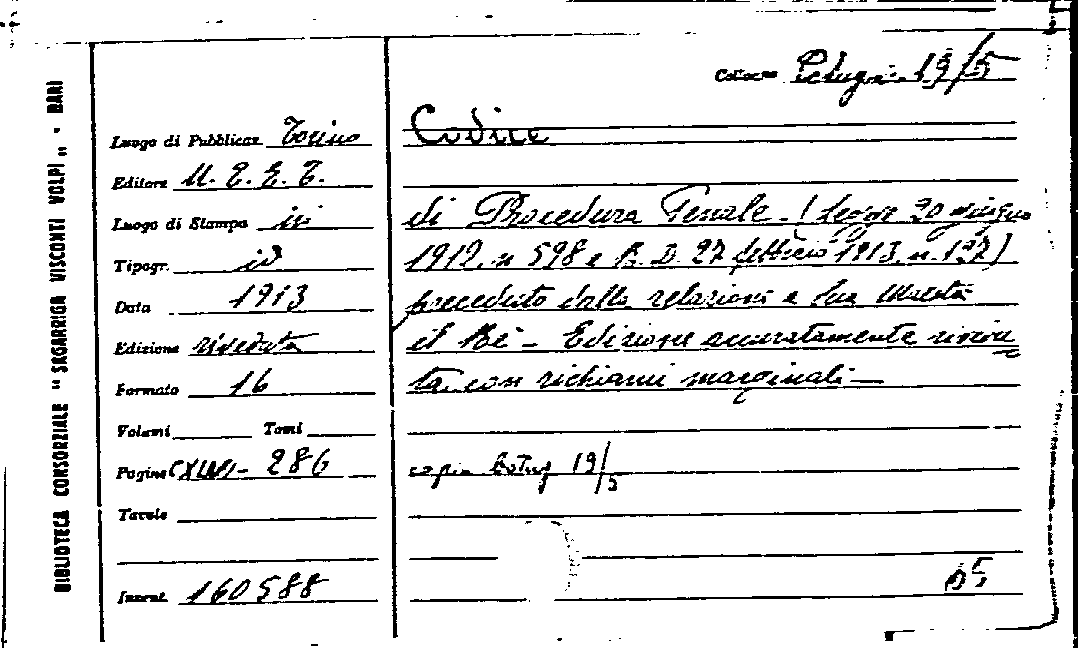 BIBLIOTECA CONSORZIALE "SAGARRIGA VISCONTI VOLPI" - BARI
19/5
Luogo di Pubblicaz. Torino
Editore U. T. E. T.
Luogo di Stampa ivi
Tipogr. id
Data 1913
Edizione riveduta
Formato 16
Volumi Tomi
Pagine 286
Tavole
Invent. 160588
Codice
di Procedura Penale - (Legge 20 giugno
1912. n 598 e R. D. 27 febbraio 1913. n. 127)
preceduto dalla relazione a Sua Maestà
il Re - Edizione accuratamente rivedu
ta con richiami marginali -
copia 19/5